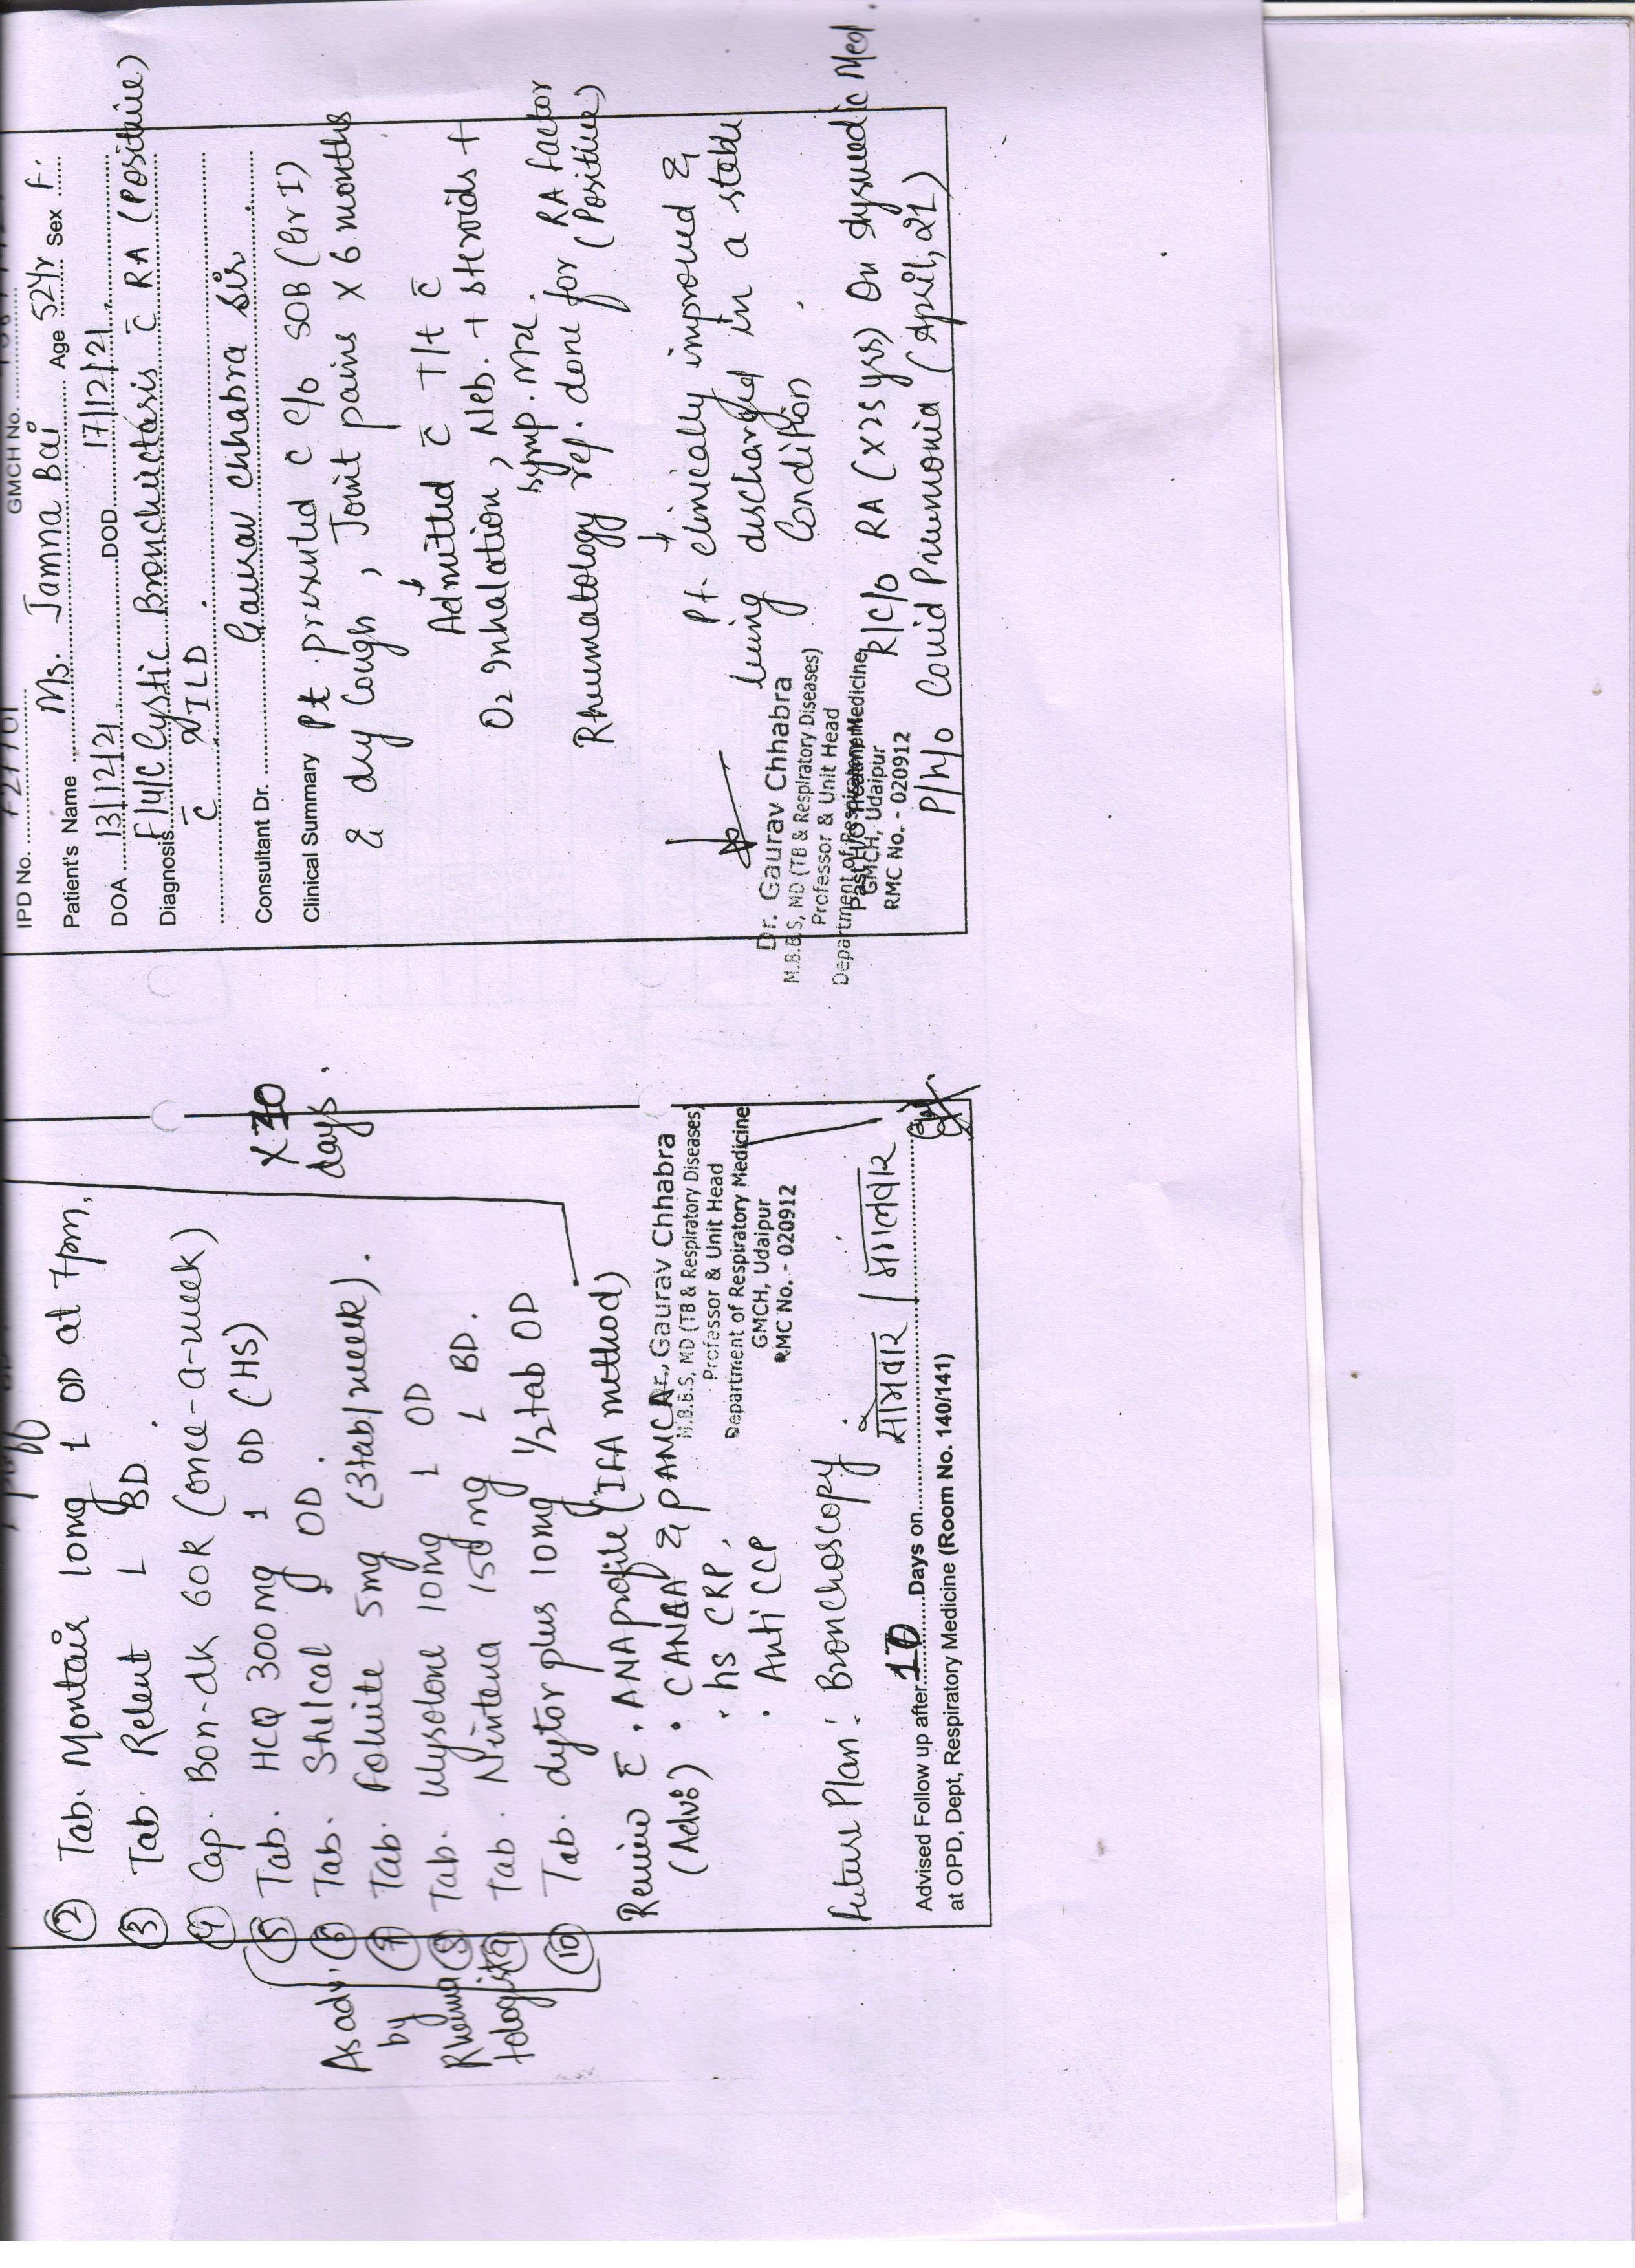 IPD No.
GMCH No.
Patient's Name Ms. Jamna Bai Age 52yr Sex F.
DOA 13/12/21 DOD 17/12/21
Diagnosis F/U/C Cystic Bronchiectasis c̄ RA (Positive)
c̄ ILD
Consultant Dr. Gaurav Chhabra Sir
Clinical Summary Pt. presented c̄ c/o SOB (Gr I)
& dry cough, Joint pains x 6 months
↓
Admitted c̄ T/t c̄
O2 Inhalation, Neb. + steroids +
symp. mx.
Rhematology rep. done for RA factor
(Positive)
↓
Pt. clinically improved &
being discharged in a stable
Condition.
Dr. Gaurav Chhabra
M.B.B.S, MD (TB & Respiratory Diseases)
Professor & Unit Head
Department of Respiratory Medicine
GMCH, Udaipur
RMC No. - 020912
R/c/o RA (x25 yrs) On Med
P/h/o Covid Pneumonia (April, 21)
② Tab. Montair 10mg 1 OD at 7pm,
③ Tab. Relent 1 BD.
④ Cap. Bon-dk 60K (once-a-week)
⑤ Tab. HCQ 300mg 1 OD (HS)
⑥ Tab. Shelcal OD.
⑦ Tab. Folvite 5mg (3tab/week).
⑧ Tab. Wysolone 10mg 1 OD
⑨ Tab. Nintena 150mg 1 BD.
⑩ Tab. dytor plus 10mg 1/2 tab OD
As adv. by Rheumatologist
x 10 days.
Review c̄ • ANA profile (IFA method)
(Adv:) • CANCA & PANCA
• hs CRP,
• Anti CCP
Dr. Gaurav Chhabra
M.B.B.S, MD (TB & Respiratory Diseases)
Professor & Unit Head
Department of Respiratory Medicine
GMCH, Udaipur
RMC No. - 020912
Future Plan: Bronchoscopy
सोमवार / मंगलवार
Advised Follow up after 10 Days on
at OPD, Dept, Respiratory Medicine (Room No. 140/141)